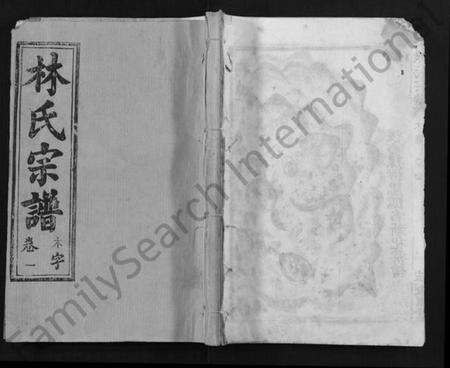 林氏宗譜
卷一
木字
FamilySearch International